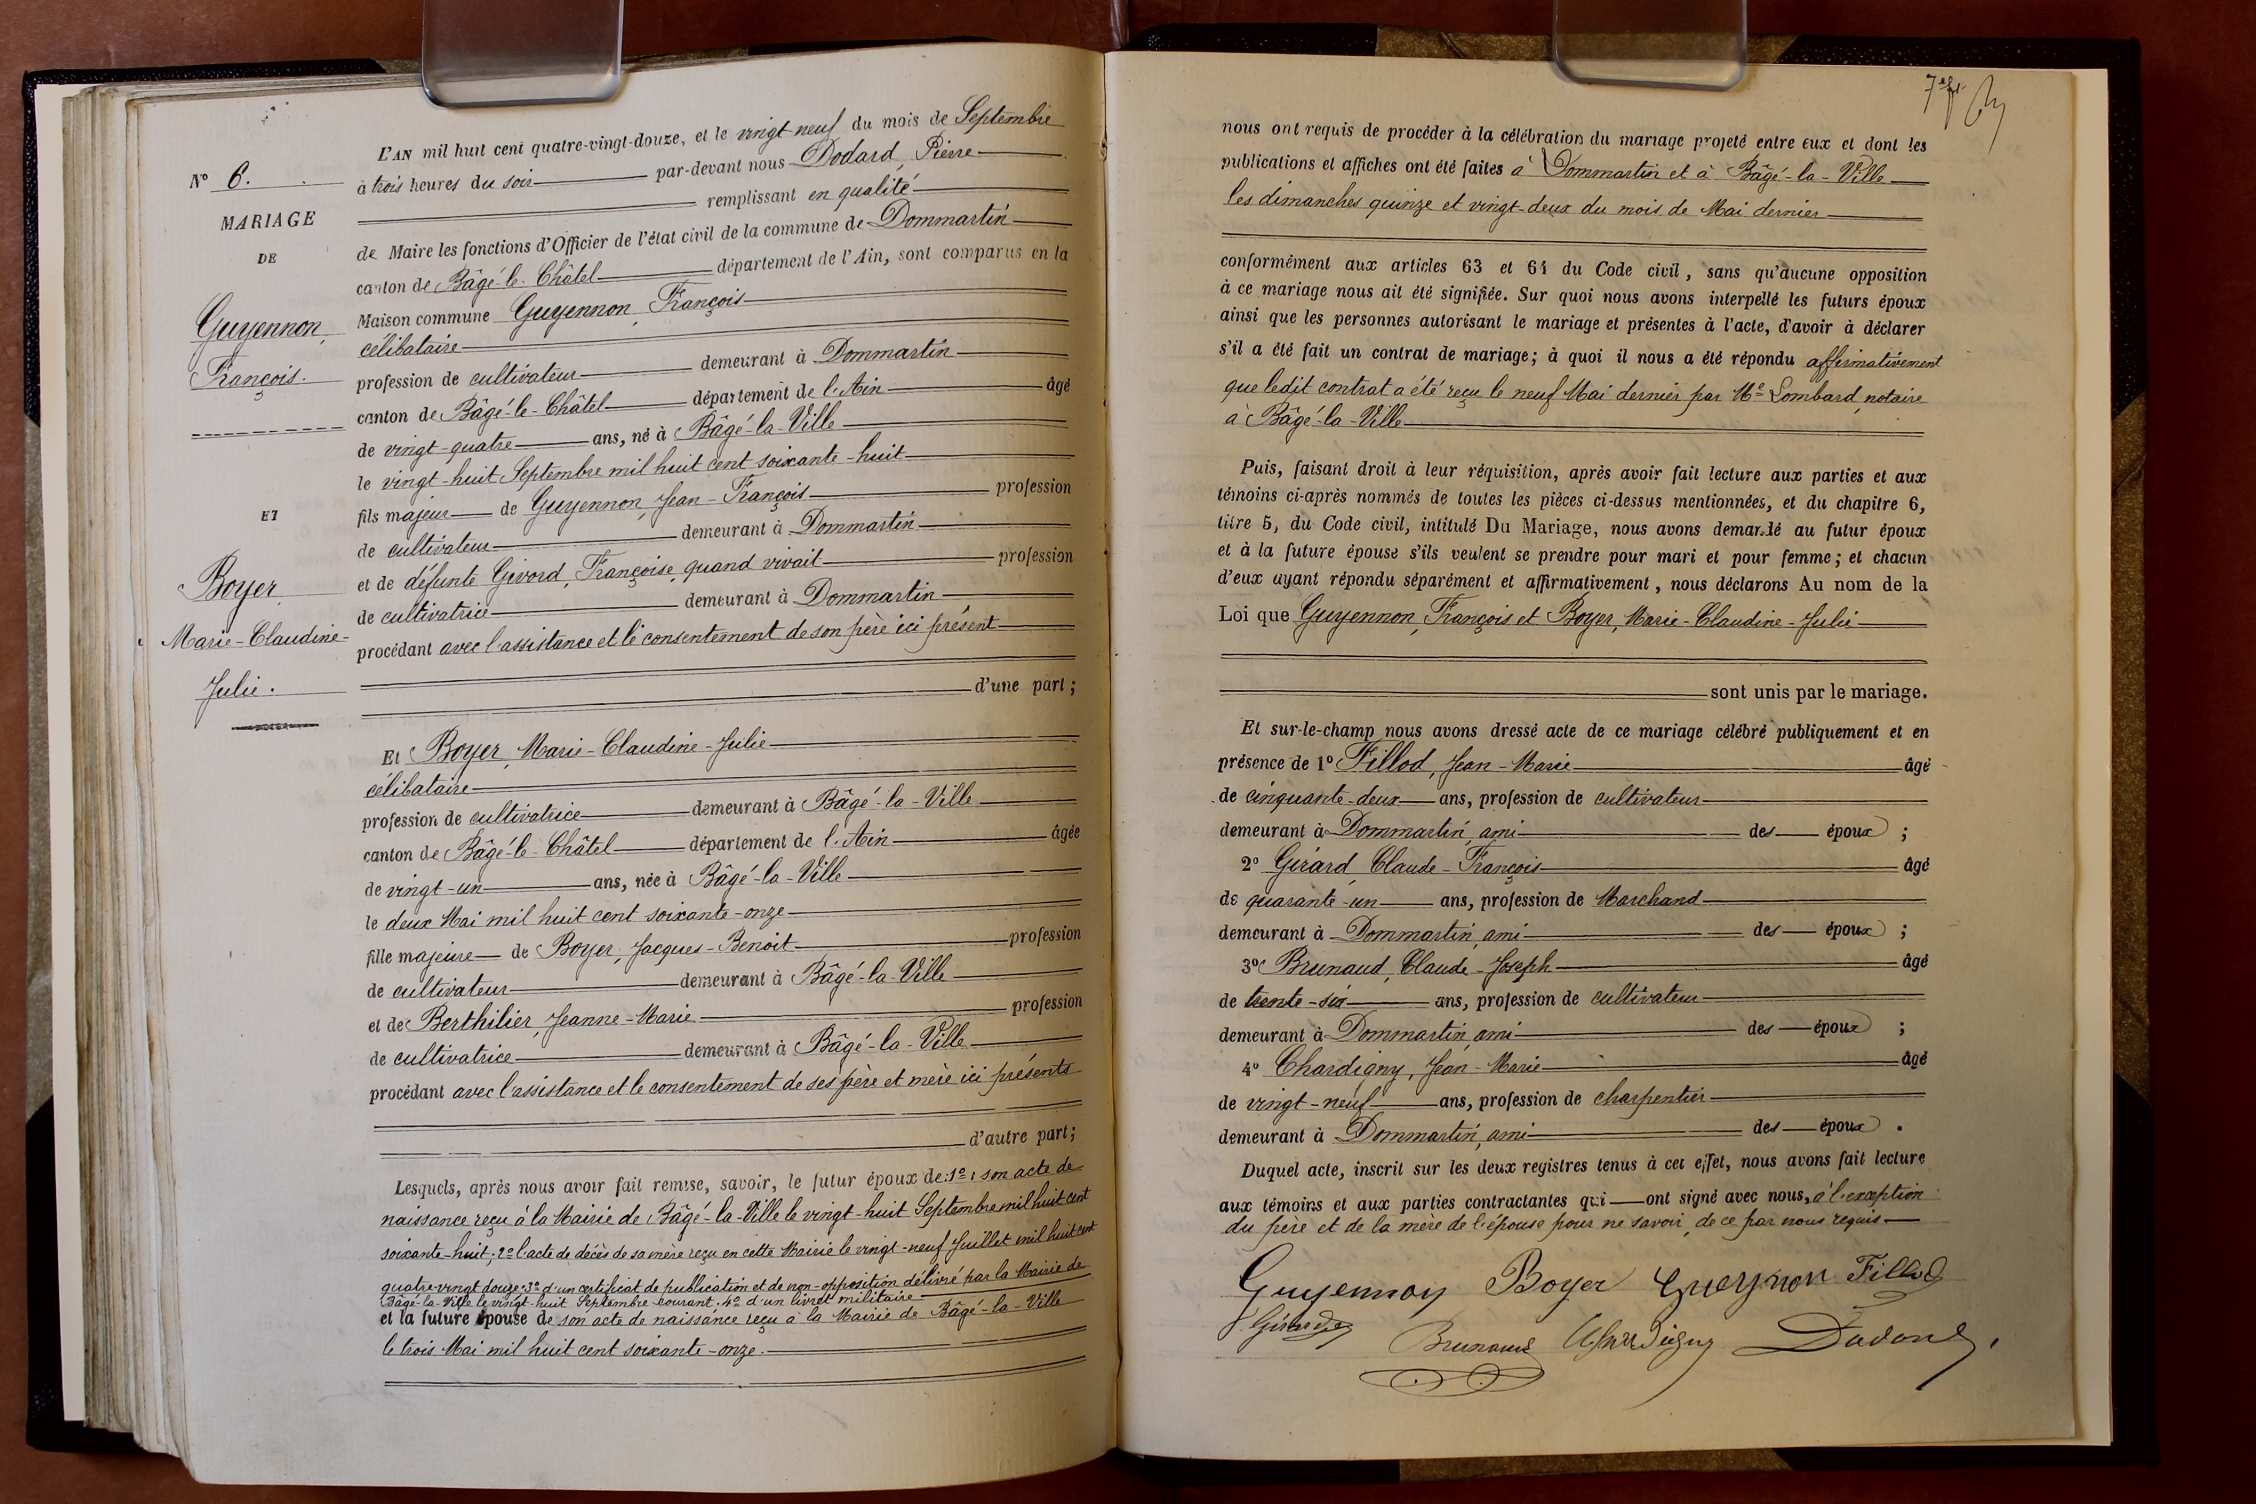 N° 6.
MARIAGE
DE
Guyennon,
François.
ET
Boyer
Marie-Claudine-
Julie.
L'AN mil huit cent quatre-vingt-douze, et le vingt neuf du mois de Septembre
à trois heures du soir par-devant nous Dodard, Pierre
remplissant en qualité
de Maire les fonctions d'Officier de l'état civil de la commune de Dommartin
canton de Bâgé-le-Châtel département de l'Ain, sont comparus en la
Maison commune Guyennon, François
célibataire
profession de cultivateur demeurant à Dommartin
canton de Bâgé-le-Châtel département de l'Ain âgé
de vingt-quatre ans, né à Bâgé-la-Ville
le vingt-huit Septembre mil huit cent soixante-huit
fils majeur de Guyennon, Jean-François profession
de cultivateur demeurant à Dommartin
et de défunte Givord, Françoise, quand vivait profession
de cultivatrice demeurant à Dommartin
procédant avec l'assistance et le consentement de son père ici présent
d'une part;
Et Boyer, Marie-Claudine-Julie
célibataire
profession de cultivatrice demeurant à Bâgé-la-Ville
canton de Bâgé-le-Châtel département de l'Ain âgée
de vingt-un ans, née à Bâgé-la-Ville
le deux Mai mil huit cent soixante-onze
fille majeure de Boyer, Jacques-Benoit profession
de cultivateur demeurant à Bâgé-la-Ville
et de Berthilier, Jeanne-Marie profession
de cultivatrice demeurant à Bâgé-la-Ville
procédant avec l'assistance et le consentement de ses père et mère ici présents
d'autre part;
Lesquels, après nous avoir fait remise, savoir, le futur époux de: 1° : son acte de
naissance reçu à la Mairie de Bâgé-la-Ville le vingt-huit Septembre mil huit cent
soixante-huit; 2° l'acte de décès de sa mère reçu en cette Mairie le vingt-neuf Juillet mil huit cent
quatre-vingt douze; 3° d'un certificat de publication et de non-opposition délivré par la Mairie de
Bâgé-la-Ville le vingt-huit Septembre courant; 4° d'un livret militaire
et la future épouse de son acte de naissance reçu à la Mairie de Bâgé-la-Ville
le trois Mai mil huit cent soixante-onze.
7e ft
nous ont requis de procéder à la célébration du mariage projeté entre eux et dont les
publications et affiches ont été faites à Dommartin et à Bâgé-la-Ville
les dimanches quinze et vingt-deux du mois de Mai dernier
conformément aux articles 63 et 64 du Code civil, sans qu'aucune opposition
à ce mariage nous ait été signifiée. Sur quoi nous avons interpellé les futurs époux
ainsi que les personnes autorisant le mariage et présentes à l'acte, d'avoir à déclarer
s'il a été fait un contrat de mariage; à quoi il nous a été répondu affirmativement
que ledit contrat a été reçu le neuf Mai dernier par Me Lombard, notaire
à Bâgé-la-Ville
Puis, faisant droit à leur réquisition, après avoir fait lecture aux parties et aux
témoins ci-après nommés de toutes les pièces ci-dessus mentionnées, et du chapitre 6,
titre 5, du Code civil, intitulé Du Mariage, nous avons demandé au futur époux
et à la future épouse s'ils veulent se prendre pour mari et pour femme; et chacun
d'eux ayant répondu séparément et affirmativement, nous déclarons Au nom de la
Loi que Guyennon, François et Boyer, Marie-Claudine-Julie
sont unis par le mariage.
Et sur-le-champ nous avons dressé acte de ce mariage célébré publiquement et en
présence de 1° Fillod, Jean-Marie âgé
de cinquante-deux ans, profession de cultivateur
demeurant à Dommartin, ami des époux ;
2° Girard, Claude-François âgé
de quarante-un ans, profession de Marchand
demeurant à Dommartin, ami des époux ;
3° Brunaud, Claude-Joseph âgé
de trente-six ans, profession de cultivateur
demeurant à Dommartin, ami des époux ;
4° Chardigny, Jean-Marie âgé
de vingt-neuf ans, profession de charpentier
demeurant à Dommartin, ami des époux .
Duquel acte, inscrit sur les deux registres tenus à cet effet, nous avons fait lecture
aux témoins et aux parties contractantes qui ont signé avec nous, à l'exception
du père et de la mère de l'épouse pour ne savoir, de ce par nous requis
Guyennon Boyer Gueynon Fillod
Girard Brunaud Chardigny Dodard